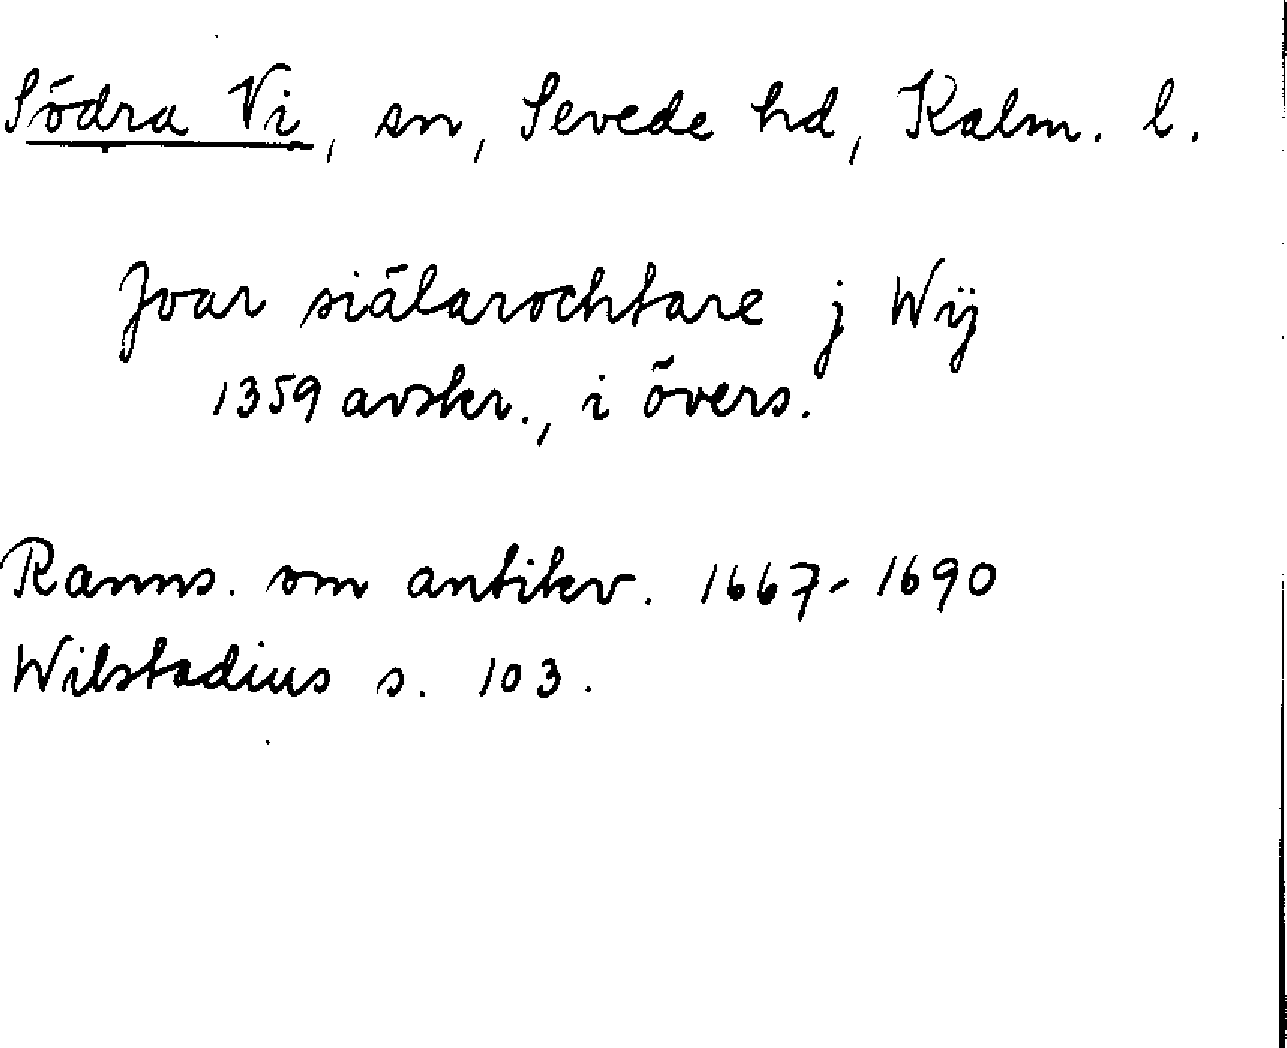 Södra Vi, sn, Sevede hd, Kalm. l.
Joar siälarochtare j Wij
1359 avskr., i övers.
Ranns. om antikv. 1667-1690
Wilstadius s. 103.